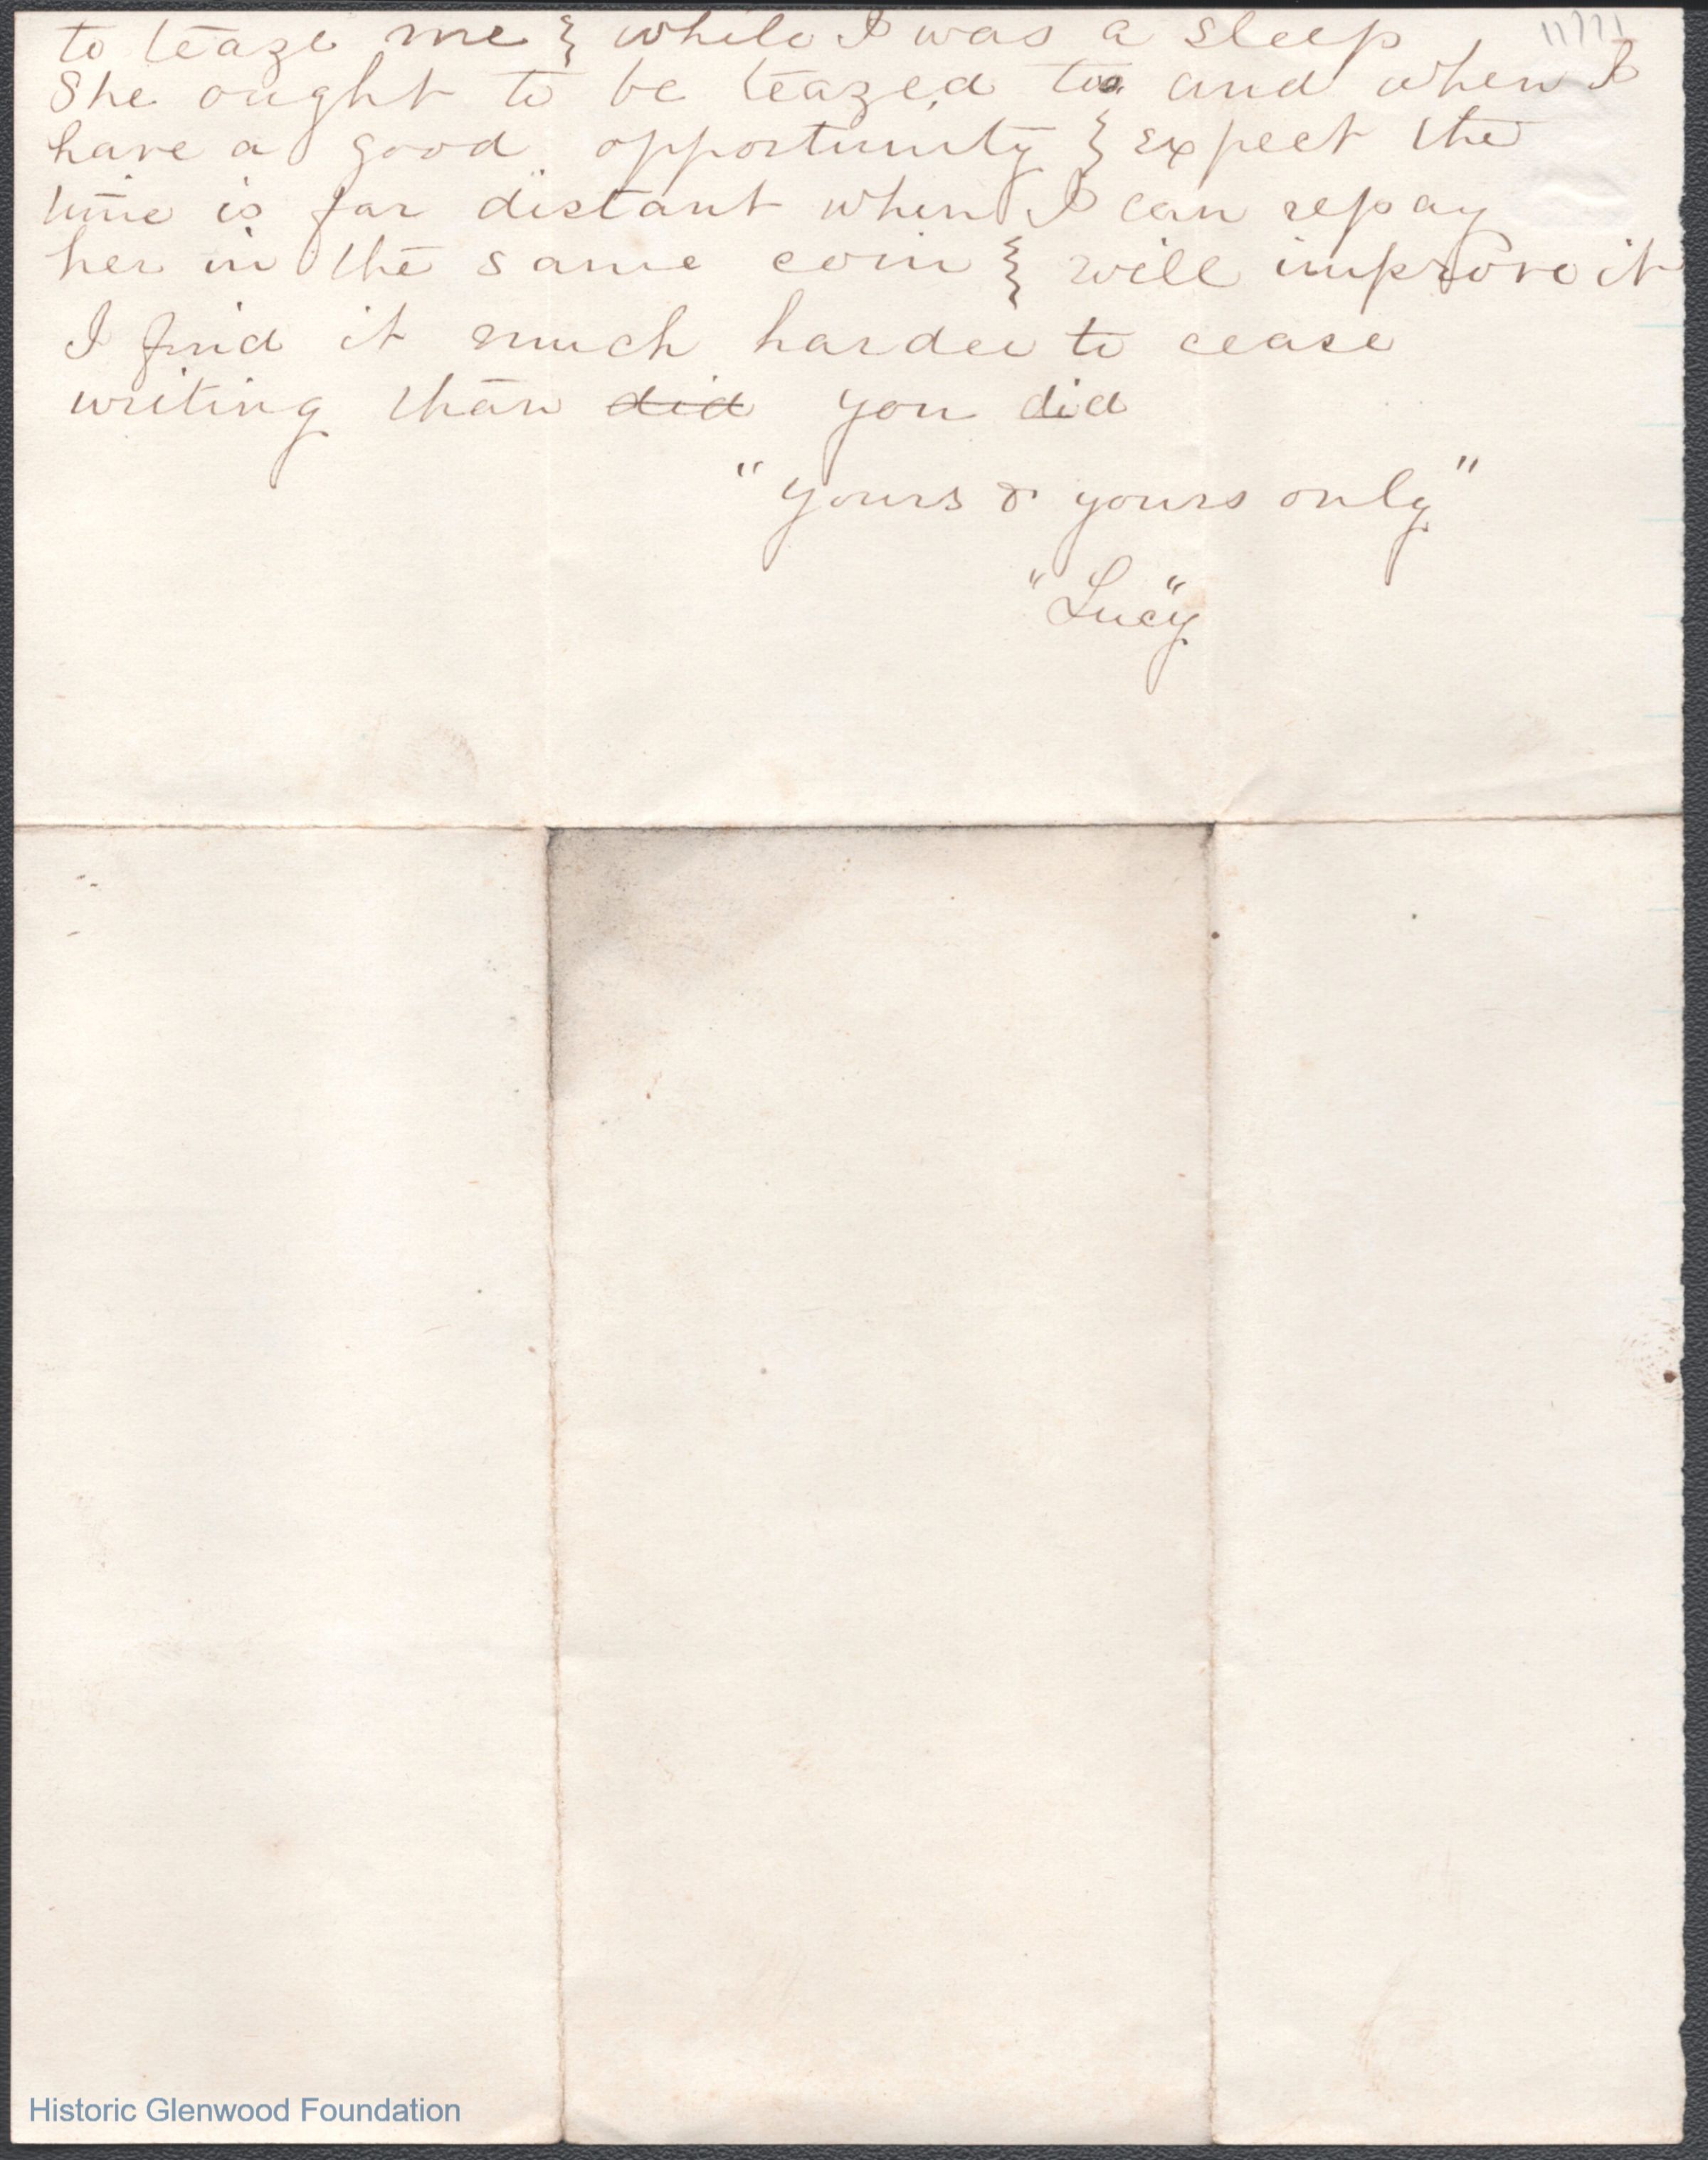 to teaze me } while I was a sleep
She ought to be teazed too and when I
have a good opportunity } expect the
time is far distant when I can repay
her in the same coin } will improve it
I find it much harder to cease
writing than ~~did~~ you did
"yours & yours only"
"Lucy"
Historic Glenwood Foundation